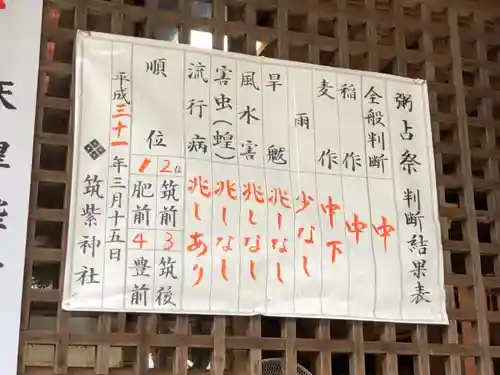 粥占祭 判断結果表
全般判断 中
稲作 中
麦作 中下
雨 少なし
旱魃 兆しなし
風水害 兆しなし
害虫(蝗) 兆しなし
流行病 兆しあり
順位
1 肥前 2位 筑前
4 豊前 3 筑後
平成三十一年三月十五日
筑紫神社